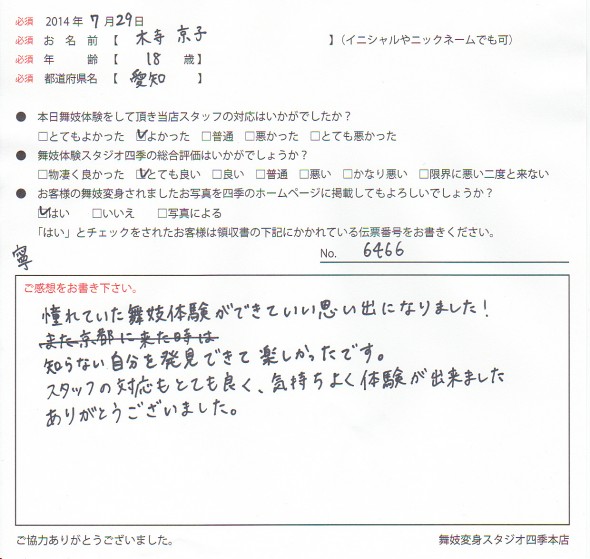 必須 2014年 7月29日
必須 お名前【 木寺 京子 】(イニシャルやニックネームでも可)
必須 年齢【 18 歳】
必須 都道府県名【 愛知 】
● 本日舞妓体験をして頂き当店スタッフの対応はいかがでしたか?
□とてもよかった ☑よかった □普通 □悪かった □とても悪かった
● 舞妓体験スタジオ四季の総合評価はいかがでしょうか?
□物凄く良かった ☑とても良い □良い □普通 □悪い □かなり悪い □限界に悪い二度と来ない
● お客様の舞妓変身されましたお写真を四季のホームページに掲載してもよろしいでしょうか?
☑はい □いいえ □写真による
「はい」とチェックをされたお客様は領収書の下記にかかれている伝票番号をお書きください。
寧
No. 6466
ご感想をお書き下さい。
憧れていた舞妓体験ができていい思い出になりました!
また京都に来た時は
知らない自分を発見できて楽しかったです。
スタッフの対応もとても良く、気持ちよく体験が出来ました
ありがとうございました。
ご協力ありがとうございました。
舞妓変身スタジオ四季本店